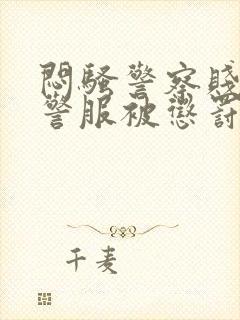 悶騷警察賤
警服被懲討
千麦